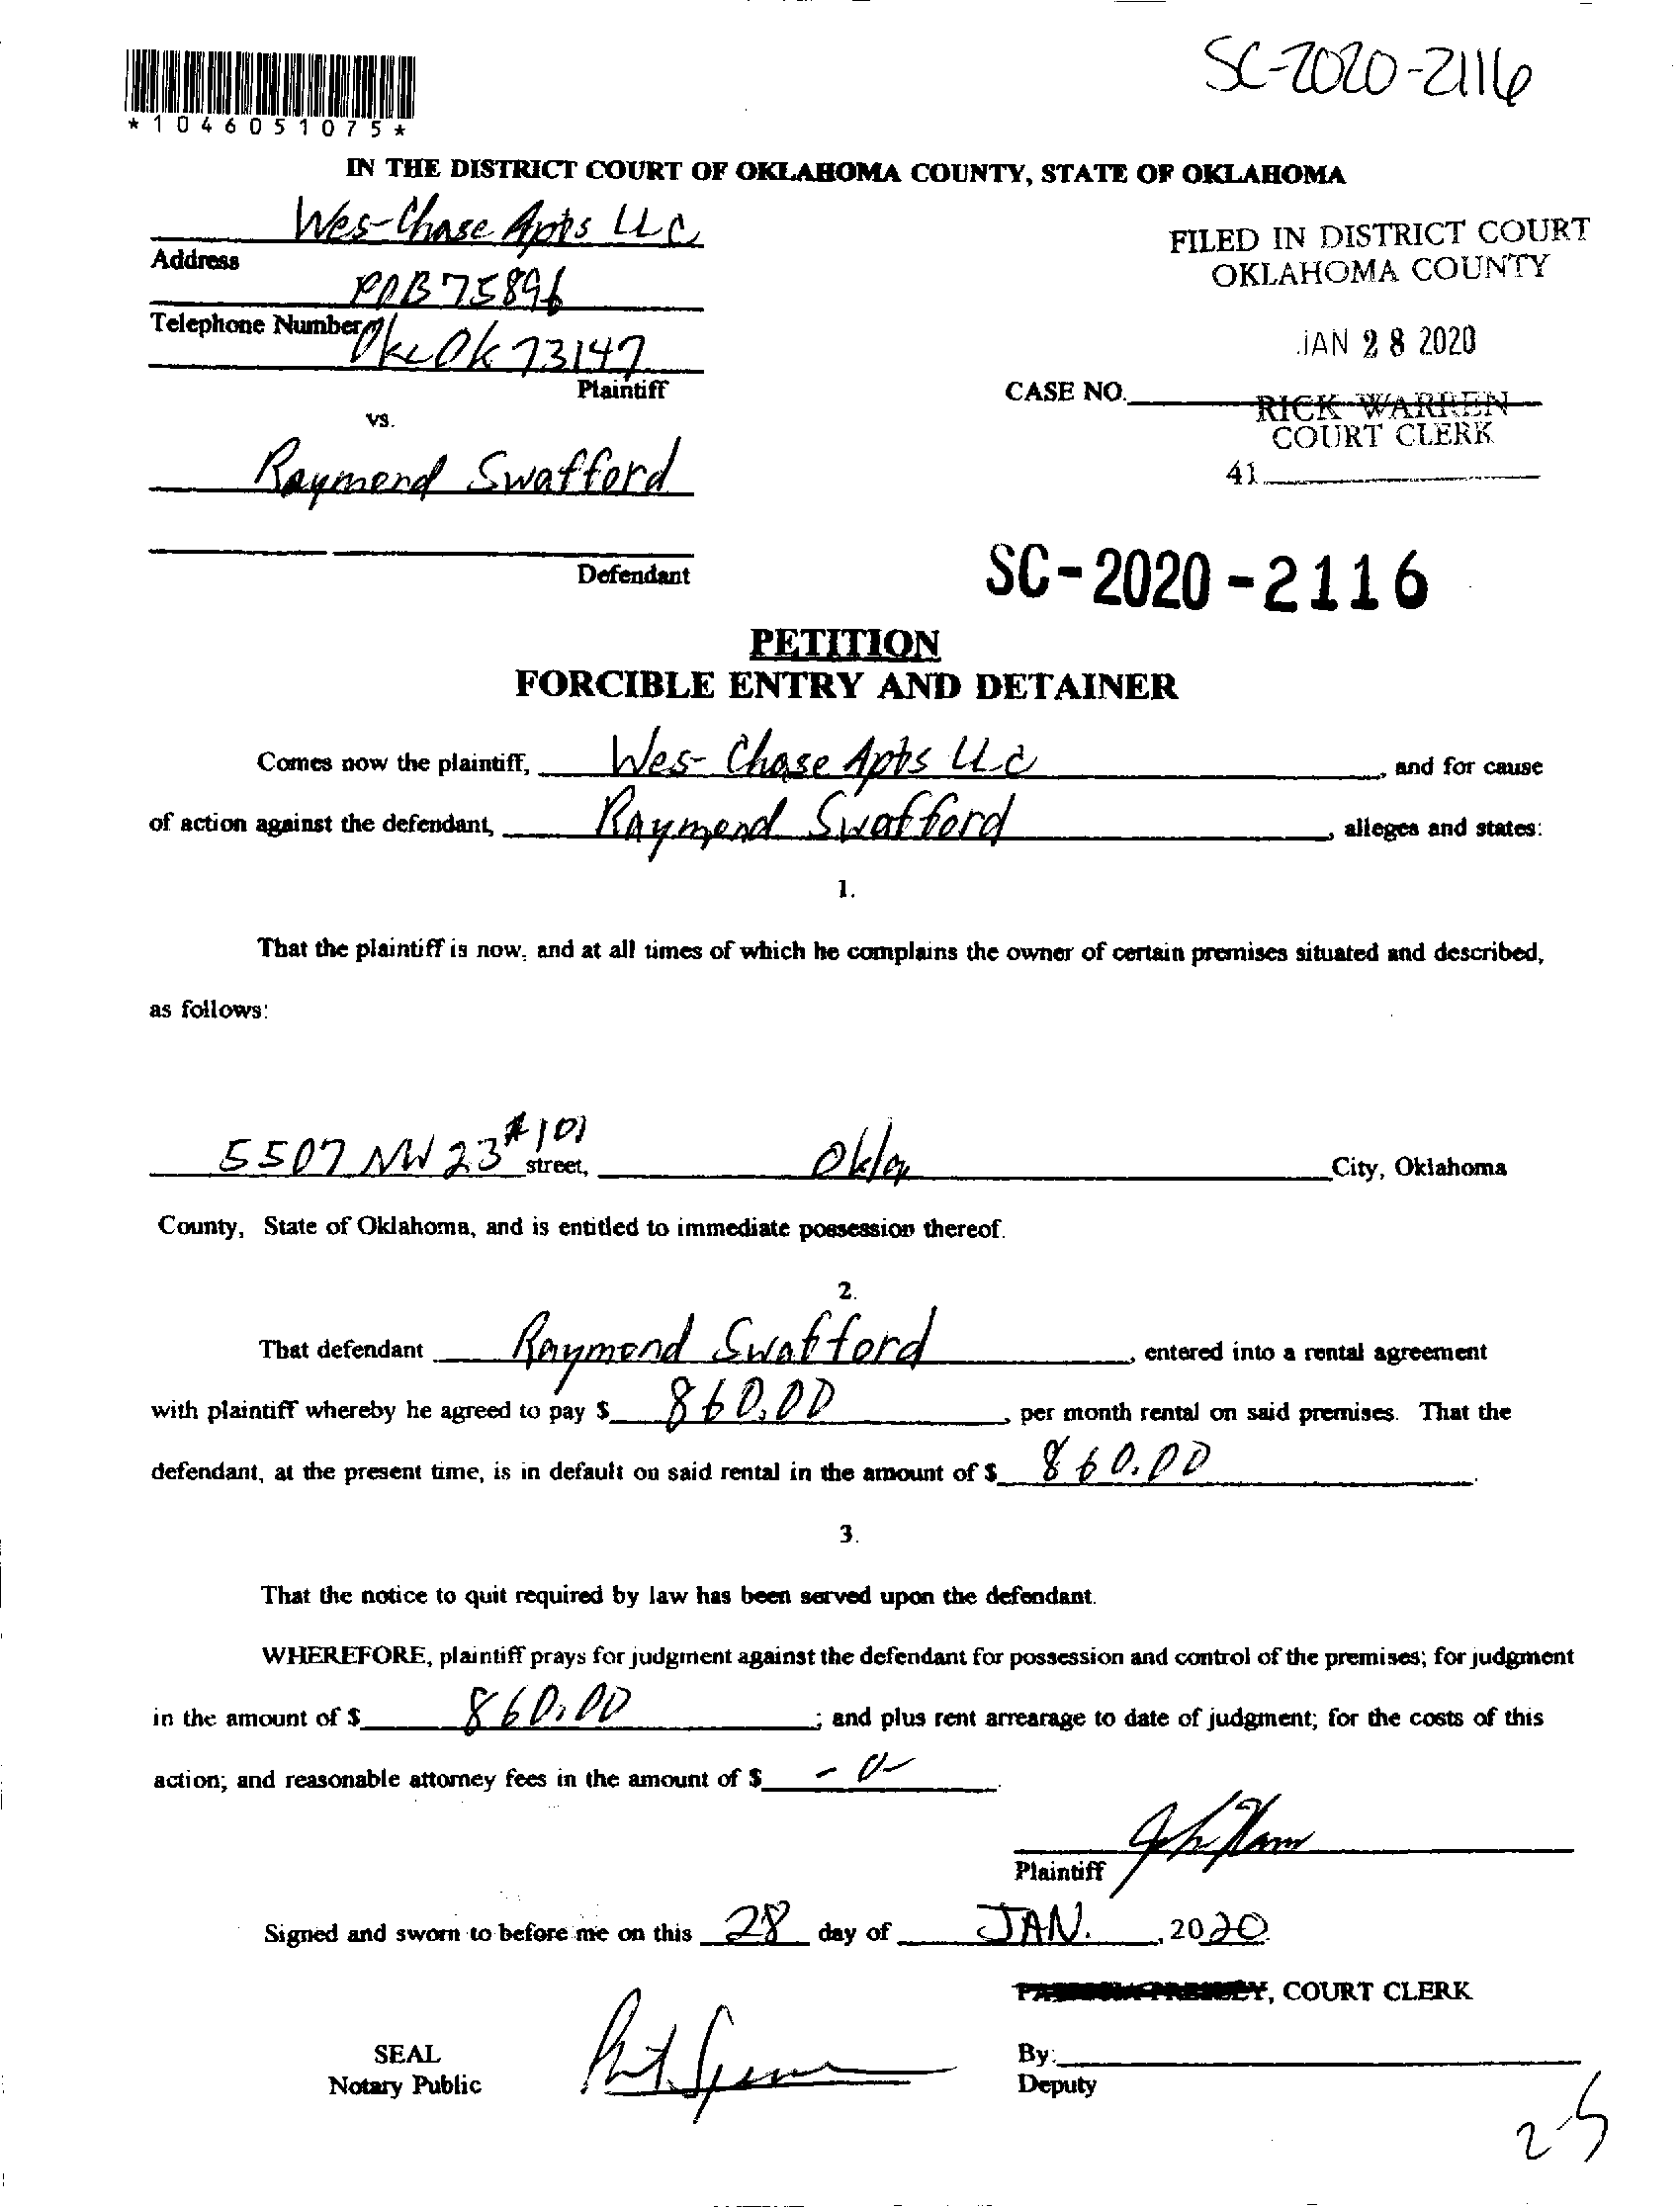 SC-2020-2116
*1046051075*
IN THE DISTRICT COURT OF OKLAHOMA COUNTY, STATE OF OKLAHOMA
Wes-Chase Apts LLC
Address
POB 75896
Telephone Number
Okc Ok 73147
Plaintiff
vs.
Raymond Swafford
Defendant
FILED IN DISTRICT COURT
OKLAHOMA COUNTY
JAN 28 2020
CASE NO.
RICK WARREN
COURT CLERK
41
SC-2020-2116
PETITION
FORCIBLE ENTRY AND DETAINER
Comes now the plaintiff, Wes-Chase Apts LLC, and for cause
of action against the defendant, Raymond Swafford, alleges and states:
1.
That the plaintiff is now, and at all times of which he complains the owner of certain premises situated and described,
as follows:
5507 NW 23 #101 street, Okla City, Oklahoma
County, State of Oklahoma, and is entitled to immediate possession thereof.
2.
That defendant Raymond Swafford, entered into a rental agreement
with plaintiff whereby he agreed to pay $ 860.00, per month rental on said premises. That the
defendant, at the present time, is in default on said rental in the amount of $ 860.00.
3.
That the notice to quit required by law has been served upon the defendant.
WHEREFORE, plaintiff prays for judgment against the defendant for possession and control of the premises; for judgment
in the amount of $ 860.00; and plus rent arrearage to date of judgment; for the costs of this
action; and reasonable attorney fees in the amount of $ -0-.
Plaintiff
Signed and sworn to before me on this 28 day of JAN., 2020.
, COURT CLERK
SEAL
Notary Public
By:
Deputy
25